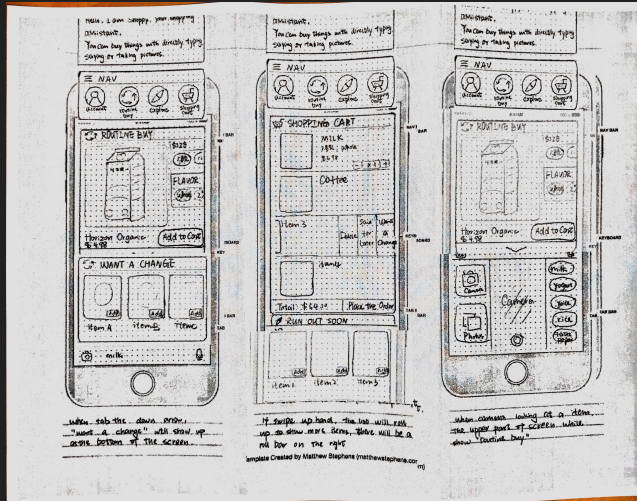 Hello, I am Shoppy, your shopping
assistant.
You can buy things with directly typing
saying or taking pictures.
≡ NAV
account
routine buy
explore
shopping cart
ROUTINE BUY
SIZE
FLAVOR
Horizon Organic
$ 4.98
Add to Cart
WANT A CHANGE
Add
Add
Add
item A
item B
item C
milk
when tab the down arrow,
"want a change" will show up
at the bottom of the screen.
assistant.
You can buy things with directly typing
saying or taking pictures.
≡ NAV
account
routine buy
explore
shopping cart
SHOPPING CART
MILK
$4.98
Coffee
Item 3
Delete
Save for later
Want a Change
Total: $64.30
Place the Order
RUN OUT SOON
Add
Add
Add
item 1
item 2
item 3
If swipe up hard, the tab will roll
up to show more items, there will be a
roll bar on the right
Template Created by Matthew Stephens (matthewstephens.com)
assistant.
You can buy things with directly typing
saying or taking pictures.
≡ NAV
account
routine buy
explore
shopping cart
ROUTINE BUY
SIZE
FLAVOR
Horizon Organic
$ 4.98
Add to Cart
Camera
Photos
Camera
milk
yogurt
juice
rice
toilet paper
when camera looking at a item,
the upper part of screen while
show "routine buy"
NAV BAR
KEYBOARD
TAB BAR